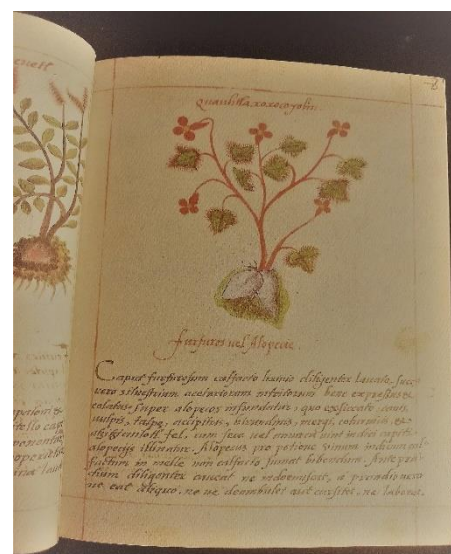 Quauhtla xoxocoyolin.
furfures vel Alopeciae.
Caput furfurosum calfacto lixivio diligenter lauato, succus
vero silvestrium acetariorum intritorum bene expressus &
colatus, super alopecias infundatur, quo exsiccato canis,
vulpis, talpae, accipitris, hirundinis, mergi, coturnicis, &
fel, cum fece vel vini indici capite
alopecijs illinatur. Alopecus pro potione vinum indicum cal-
factum in melle non calfacto sumat bibendum. Ante pran-
dium diligenter caveat ne indormiscat, a prandio
ne eat aliquo, ne deambulet aut cursitet, ne laboret.